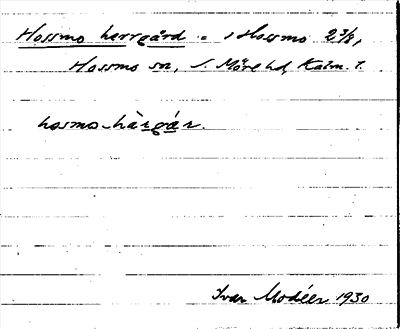 Hossmo herrgård = , Hossmo 2 3/8,
Hossmo sn, S. Möre hd, Kalm. l.
hosmo-hàrgár.
Ivar Modéer 1930